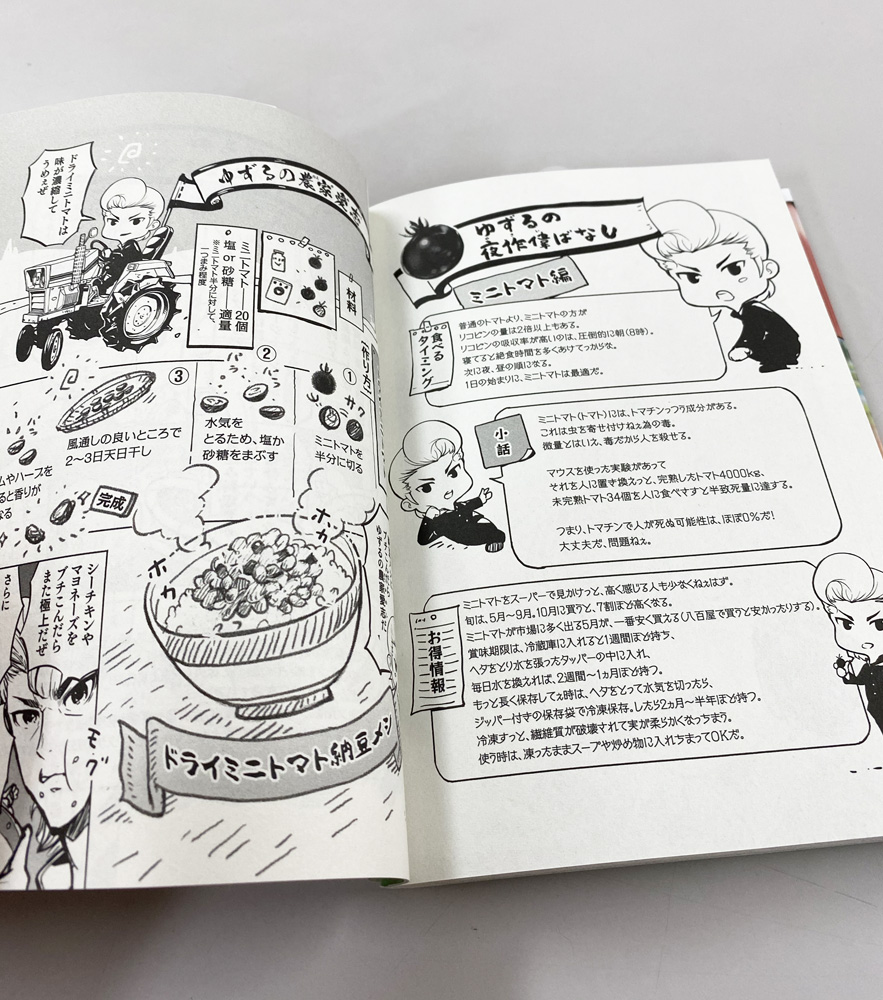 ドライミニトマトは
味が濃縮して
うめぇぜ
ゆずるの農家愛志
材料
ミニトマト――20個
塩 or 砂糖――適量
※ミニトマト半分に対して、
一つまみ程度
作り方
①
サク
ミニトマトを
半分に切る
②
パラ
水気を
とるため、塩か
砂糖をまぶす
③
風通しの良いところで
2〜3日天日干し
ムやハーブを
ると香りが
なる
完成
ホカ
ホカ
ゆずるの農家愛志だ
ドライミニトマト納豆メシ
シーチキンや
マヨネーズを
ブチこんだら
また極上だぜ
さらに
モグ
ゆずるの
夜作偉ばなし
ミニトマト編
食べる
タイミング
普通のトマトより、ミニトマトの方が
リコピンの量は2倍以上もある。
リコピンの吸収率が高いのは、圧倒的に朝(8時)。
寝てると絶食時間を多くあけてっからな。
次に夜、昼の順になる。
1日の始まりに、ミニトマトは最適だ。
小話
ミニトマト(トマト)には、トマチンっつう成分がある。
これは虫を寄せ付けねぇ為の毒。
微量とはいえ、毒だから人を殺せる。
マウスを使った実験があって
それを人に置き換えっと、完熟したトマト4000kg、
未完熟トマト34個を人に食べすすと半致死量に達する。
つまり、トマチンで人が死ぬ可能性は、ほぼ0%だ!
大丈夫だ、問題ねぇ。
お得情報
ミニトマトをスーパーで見かけっと、高く感じる人も少なくねぇはず。
旬は、5月〜9月。10月に買うと、7割ほど高くなる。
ミニトマトが市場に多く出る5月が、一番安く買える(八百屋で買うと安かったりする)。
賞味期限は、冷蔵庫に入れると1週間ほど持ち、
ヘタをとり水を張ったタッパーの中に入れ、
毎日水を換えれば、2週間〜1ヵ月ほど持つ。
もっと長く保存してぇ時は、ヘタをとって水気を切ったら、
ジッパー付きの保存袋で冷凍保存。したら2ヵ月〜半年ほど持つ。
冷凍すっと、繊維質が破壊されて実が柔らかくなっちまう。
使う時は、凍ったままスープや炒め物に入れちまってOKだ。